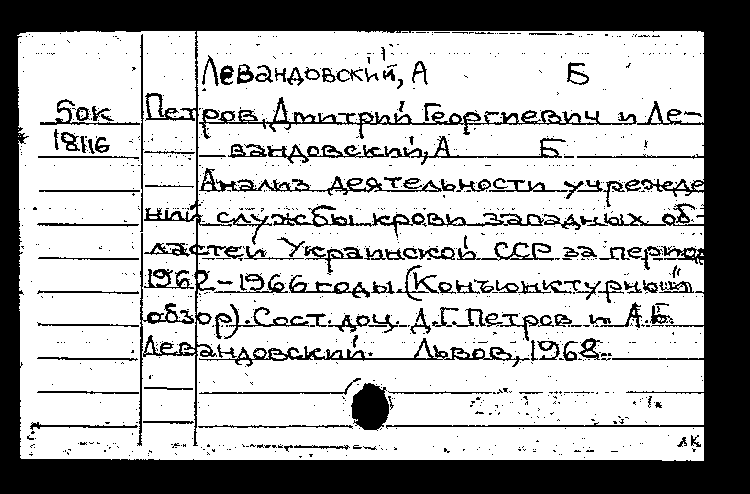 Левандовский, А Б
50к Петров, Дмитрий Георгиевич и Ле-
18116 вандовский, А Б
Анализ деятельности учрежде
ний службы крови западных об-
ластей Украинской ССР за период
1962-1966 годы. (Конъюнктурный
обзор). Сост. доц. Д.Г. Петров и А.Б.
Левандовский. Львов, 1968.
лк